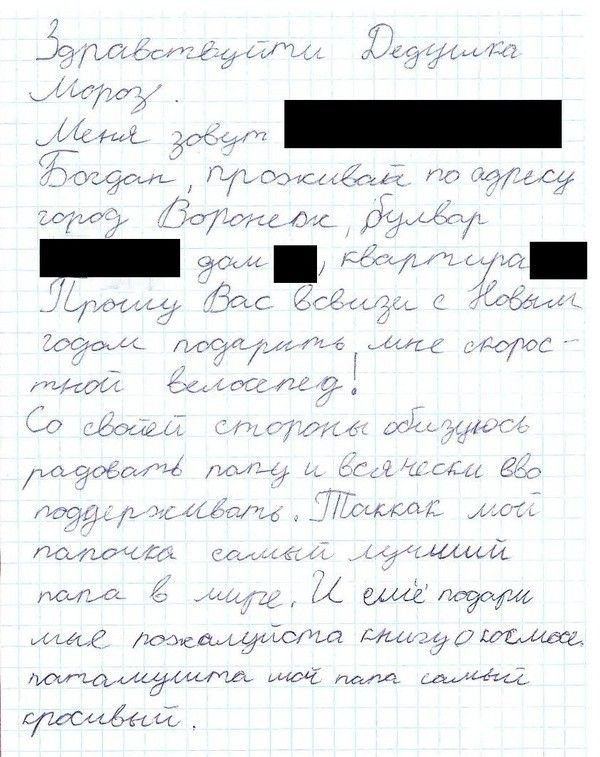 Здравствуйти Дедушка
Мороз.
Меня зовут
Богдан, проживаю по адресу
город Воронеж, булвар
дом , квартира
Прошу Вас всвизи с Новым
годом подарить мне скорос-
тной велосепед!
Со своей стороны обизуюсь
радовать папу и всячески ево
поддерживать. Таккак мой
папочка самый лучший
папа в мире. И ещё подари
мне пожалуйста книгу о космосе
патамушта мой папа самый
кросивый.